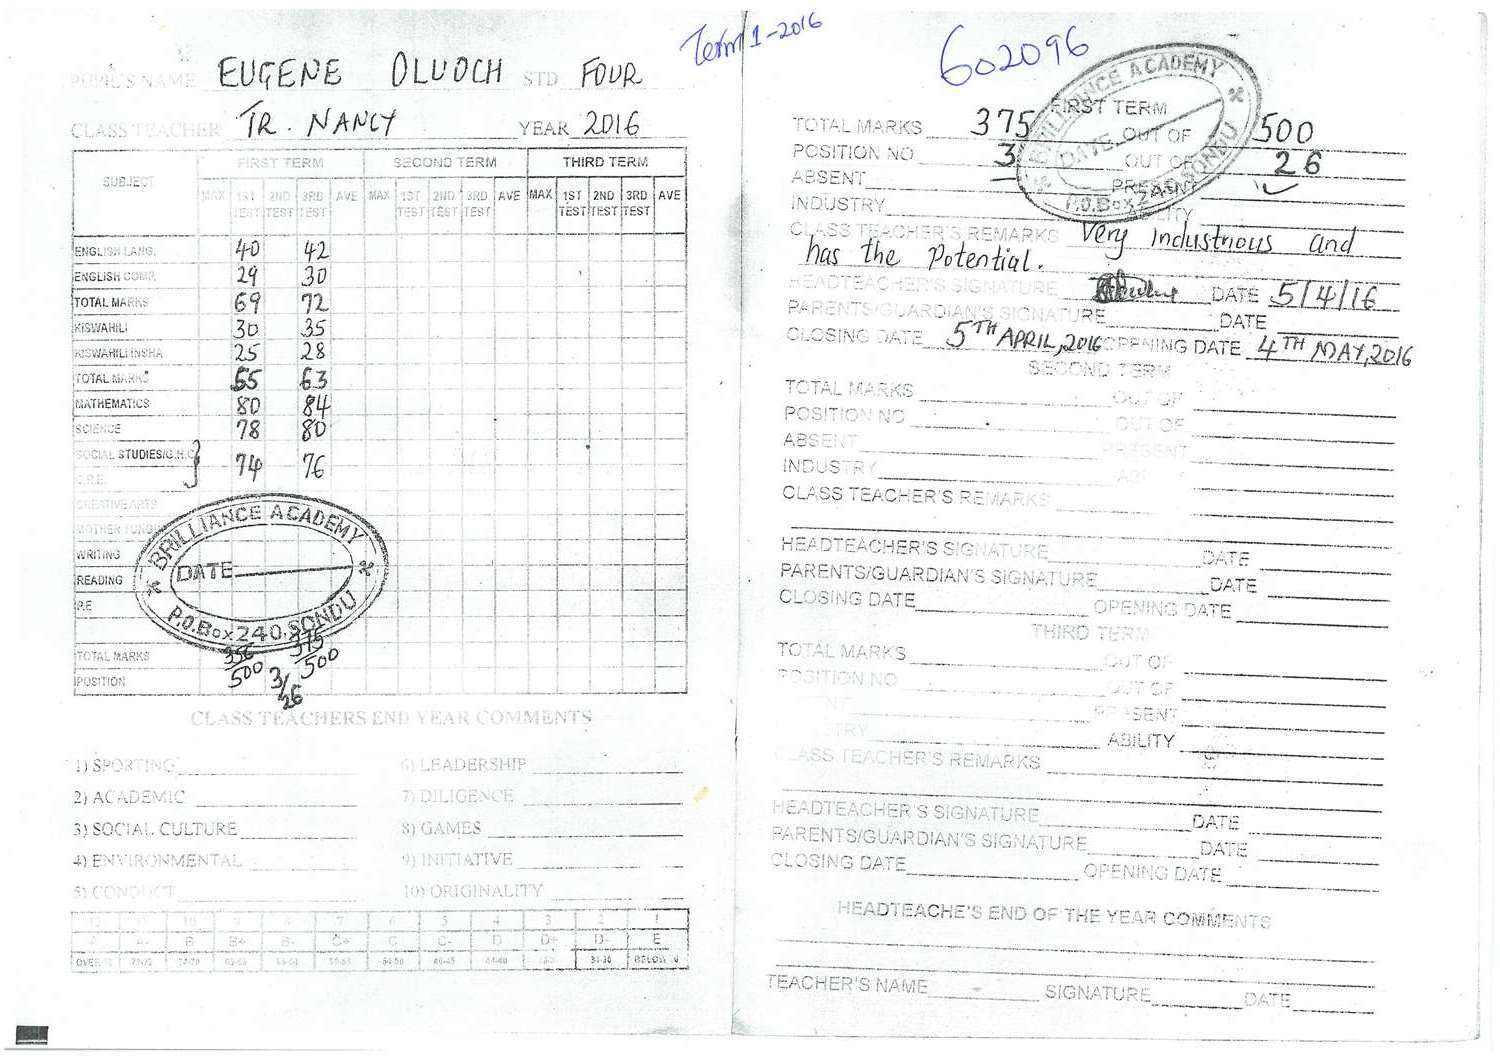 Term 1-2016
602096
PUPIL'S NAME EUGENE OLUOCH STD FOUR
CLASS TEACHER TR. NANCY YEAR 2016
SUBJECT FIRST TERM SECOND TERM THIRD TERM
MAX 1ST TEST 2ND TEST 3RD TEST AVE MAX 1ST TEST 2ND TEST 3RD TEST AVE MAX 1ST TEST 2ND TEST 3RD TEST AVE
ENGLISH LANG. 40 42
ENGLISH COMP. 29 30
TOTAL MARKS 69 72
KISWAHILI 30 35
KISWAHILI INSHA 25 28
TOTAL MARKS 55 63
MATHEMATICS 80 84
SCIENCE 78 80
SOCIAL STUDIES/G.H.C } 74 76
C.R.E.
CREATIVE ARTS
MOTHER TUNGU
WRITING
READING
P.E
BRILLIANCE ACADEMY
DATE
P.O.Box 240, SONDU
TOTAL MARKS 356/500 375/500
POSITION 3/26
CLASS TEACHERS END YEAR COMMENTS
1) SPORTING 6) LEADERSHIP
2) ACADEMIC 7) DILIGENCE
3) SOCIAL CULTURE 8) GAMES
4) ENVIRONMENTAL 9) INITIATIVE
5) CONDUCT 10) ORIGINALITY
10 9 7 6 5 4 3 2 1
A A- B B+ B- C+ C C- D D+ D- E
OVER BELOW
BRILLIANCE ACADEMY
DATE
P.O.Box SONDU
FIRST TERM
TOTAL MARKS 375 OUT OF 500
POSITION NO 3 OUT OF 26
ABSENT PRESENT ✓
INDUSTRY ABILITY
CLASS TEACHER'S REMARKS Very industrious and
has the Potential.
HEADTEACHER'S SIGNATURE DATE 5/4/16
PARENTS/GUARDIAN'S SIGNATURE DATE
CLOSING DATE 5TH APRIL, 2016 OPENING DATE 4TH MAY, 2016
SECOND TERM
TOTAL MARKS OUT OF
POSITION NO OUT OF
ABSENT PRESENT
INDUSTRY
CLASS TEACHER'S REMARKS
HEADTEACHER'S SIGNATURE DATE
PARENTS/GUARDIAN'S SIGNATURE DATE
CLOSING DATE OPENING DATE
THIRD TERM
TOTAL MARKS OUT OF
POSITION NO OUT OF
PRESENT
ABILITY
CLASS TEACHER'S REMARKS
HEADTEACHER'S SIGNATURE DATE
PARENTS/GUARDIAN'S SIGNATURE DATE
CLOSING DATE OPENING DATE
HEADTEACHE'S END OF THE YEAR COMMENTS
TEACHER'S NAME SIGNATURE DATE